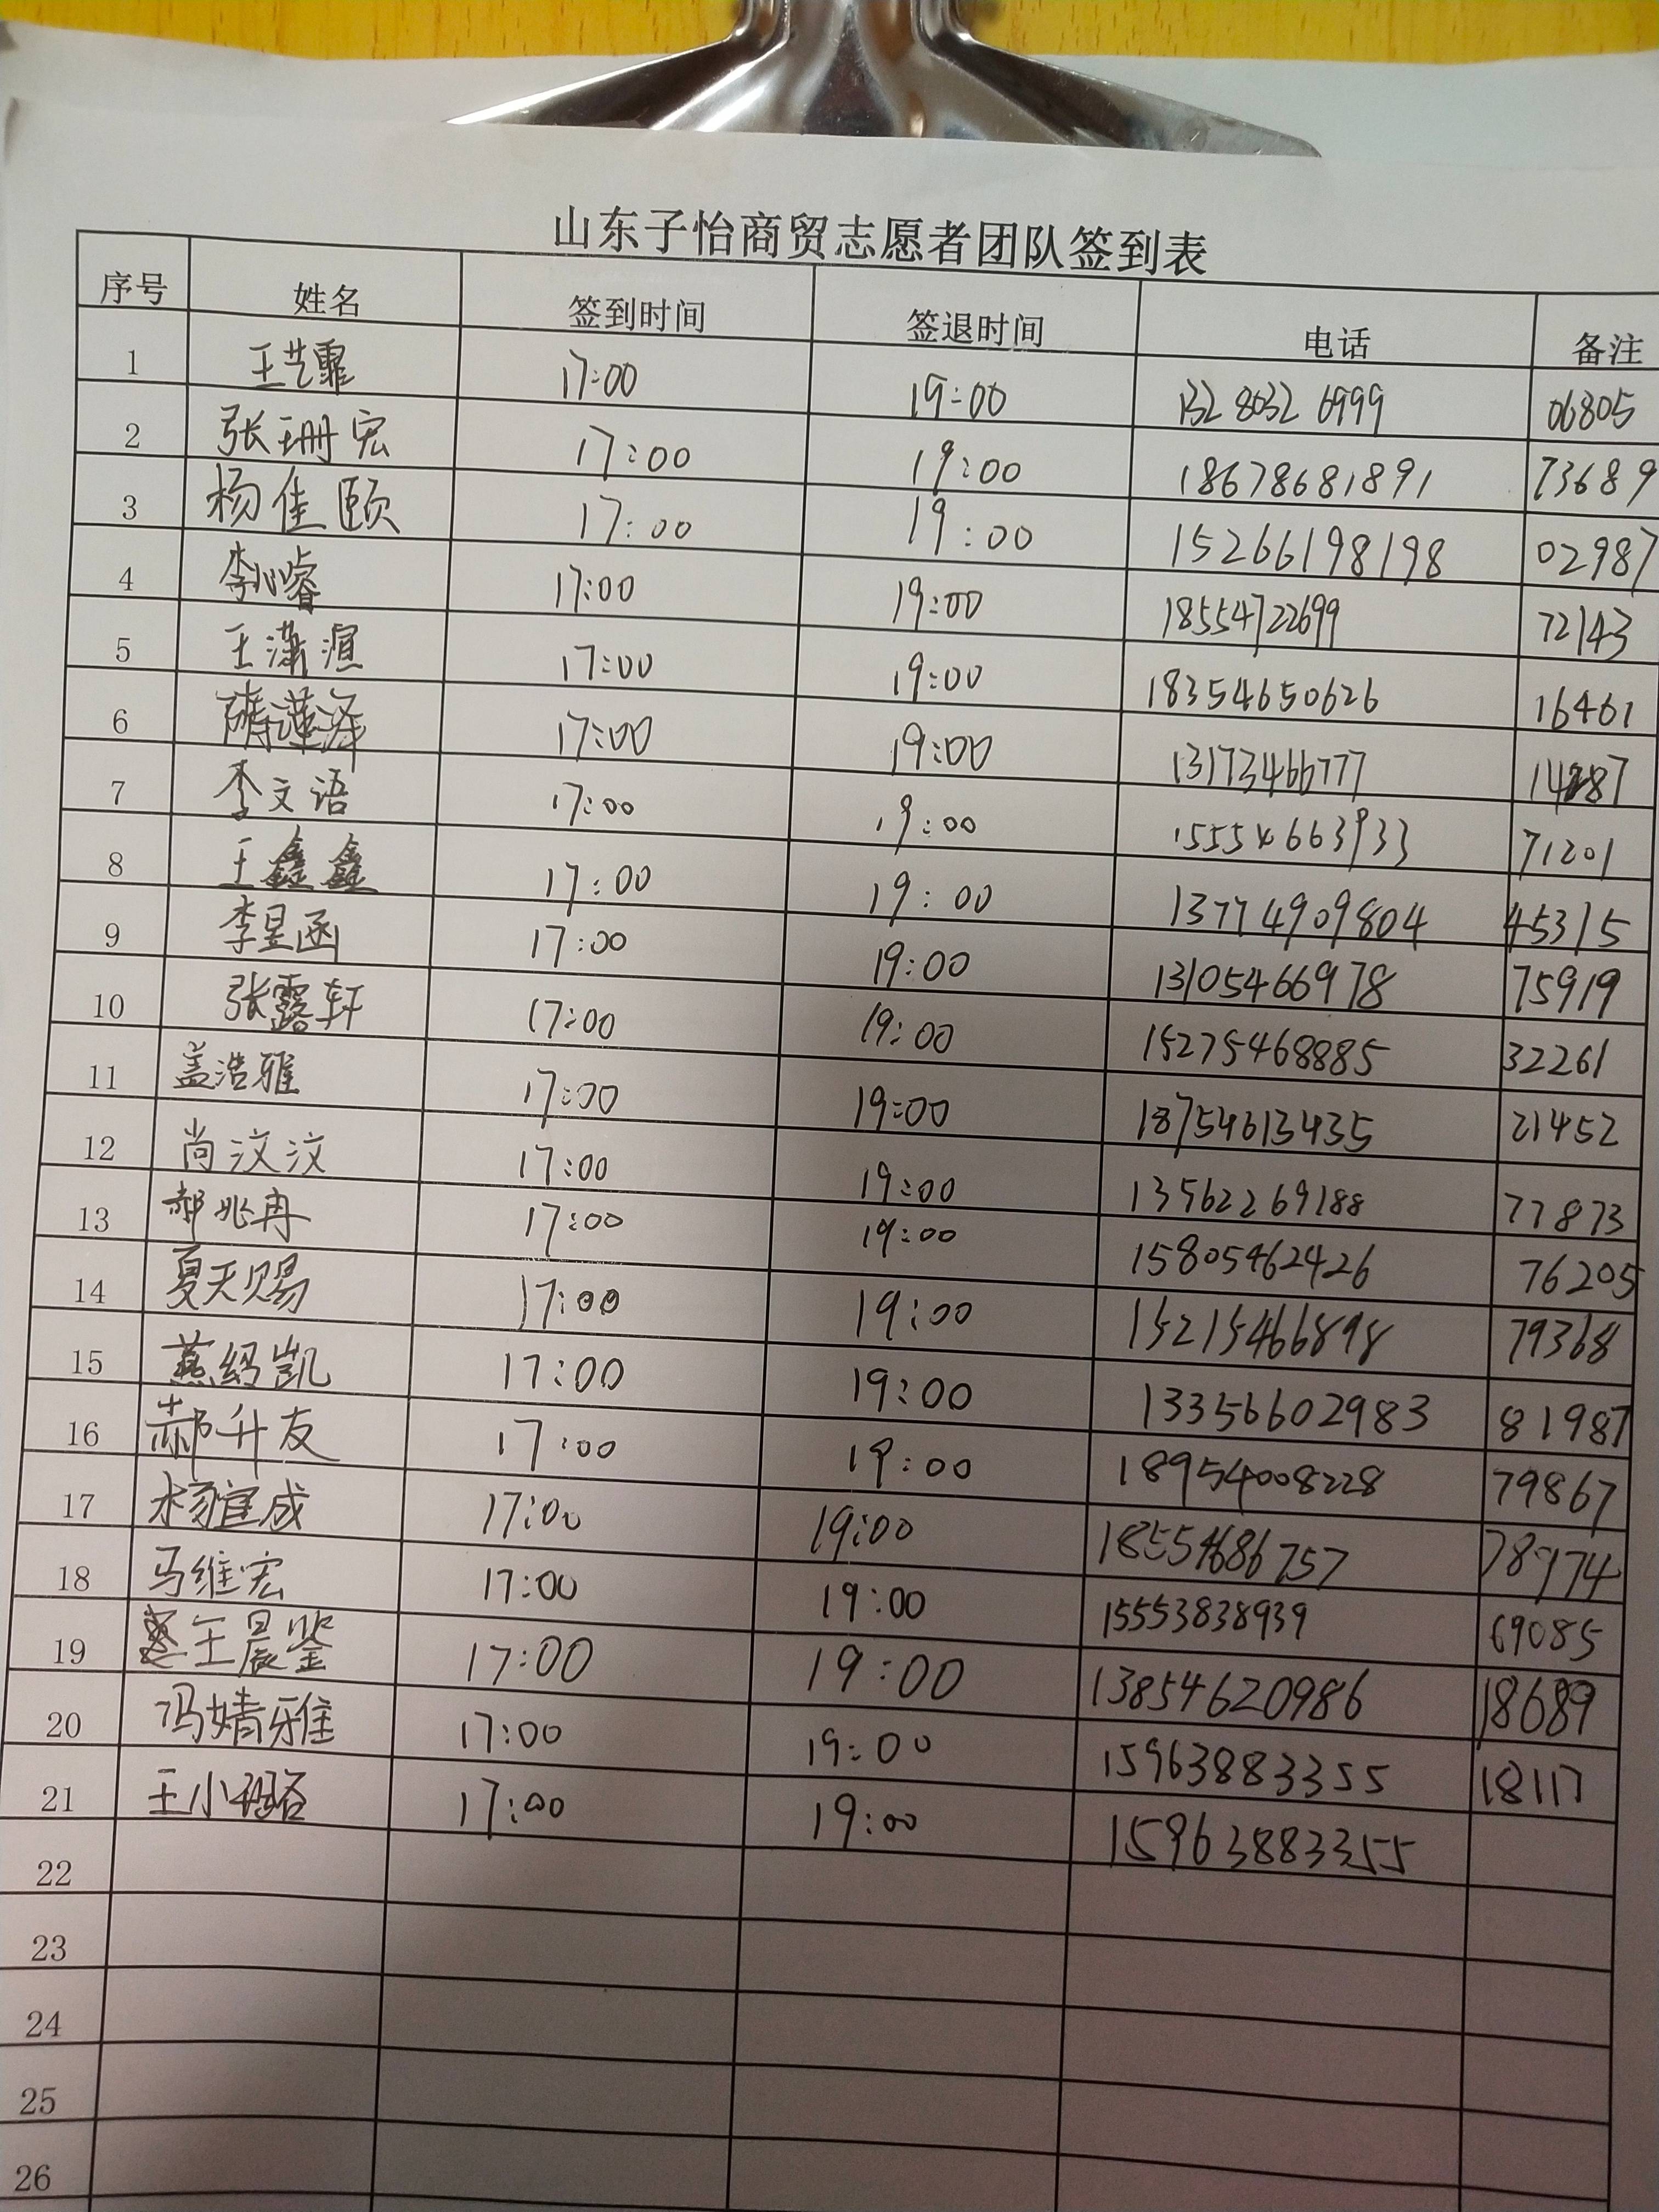 山东子怡商贸志愿者团队签到表
序号 姓名 签到时间 签退时间 电话 备注
1 王艺霏 17:00 19:00 132 8032 6999 06805
2 张珊宏 17:00 19:00 18678681891 73689
3 杨佳颐 17:00 19:00 15266198198 02987
4 李心睿 17:00 19:00 18554722699 72143
5 王潇渲 17:00 19:00 18354650626 16461
6 17:00 19:00 13173466777
7 李文语 17:00 19:00 15554663933 71201
8 王鑫鑫 17:00 19:00 13774909804 45315
9 李昱函 17:00 19:00 13105466978 75919
10 张露轩 17:00 19:00 15275468885 32261
11 盖浩雅 17:00 19:00 18754613435 21452
12 尚汶汶 17:00 19:00 13562269188 77873
13 郝兆冉 17:00 19:00 15805462426 76205
14 夏天赐 17:00 19:00 15215466898 79368
15 燕绍凯 17:00 19:00 13356602983 81987
16 郝升友 17:00 19:00 18954008228 79867
17 17:00 19:00 18554686757 78974
18 马维宏 17:00 19:00 15553838939 69085
19 王晨鉴 17:00 19:00 13854620986 18689
20 冯婧雅 17:00 19:00 15963883355 18117
21 17:00 19:00 15963883355
22
23
24
25
26